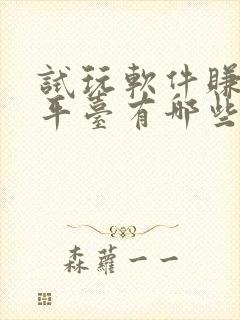 試玩軟件賺
平臺有哪些
森蘿一一